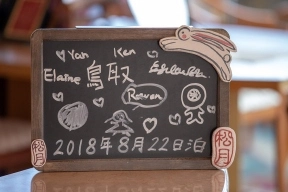 Yan Ken
Elaine 鳥取
Raven
2018年8月22日泊
松月
松月